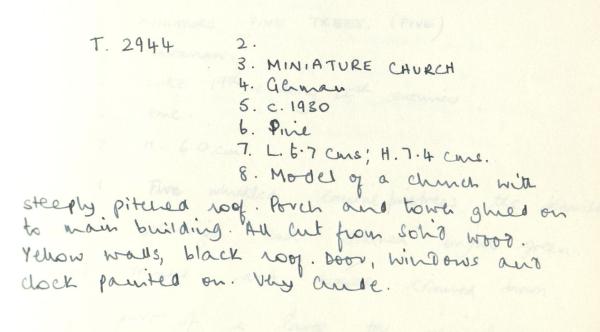 T. 2944 2.
3. MINIATURE CHURCH
4. German
5. c. 1930
6. Pine
7. L. 6.7 cms; H. 7.4 cms.
8. Model of a church with
steeply pitched roof. Porch and tower glued on
to main building. All cut from solid wood.
Yellow walls, black roof. Door, windows and
clock painted on. Very crude.